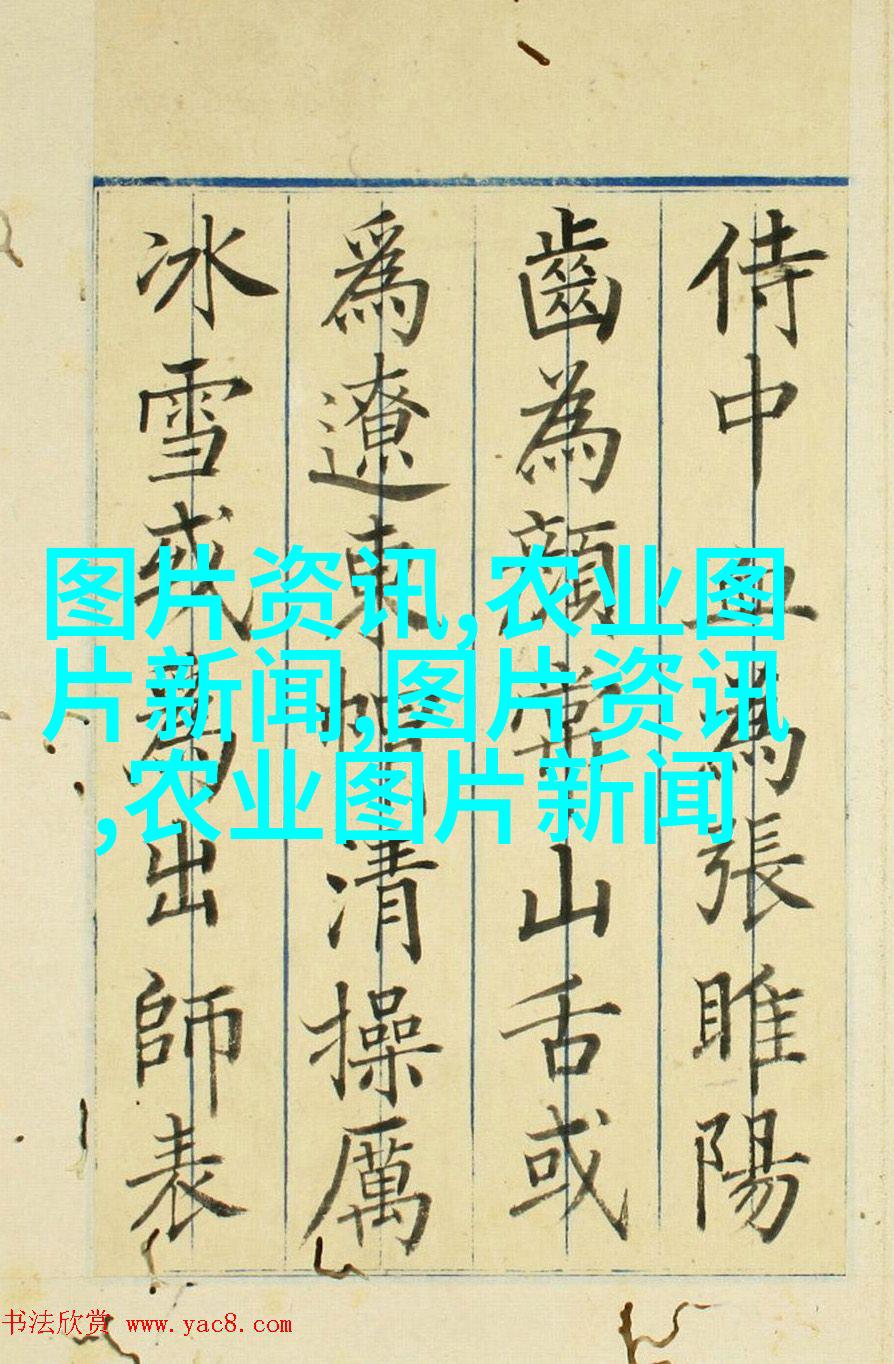 侍中為張睢陽
齒為顏常山舌或
爲遼東清操厲
冰雪或為出師表
图片资讯,农业图
片新闻,图片资讯
,农业图片新闻
书法欣赏 www.yac8.com